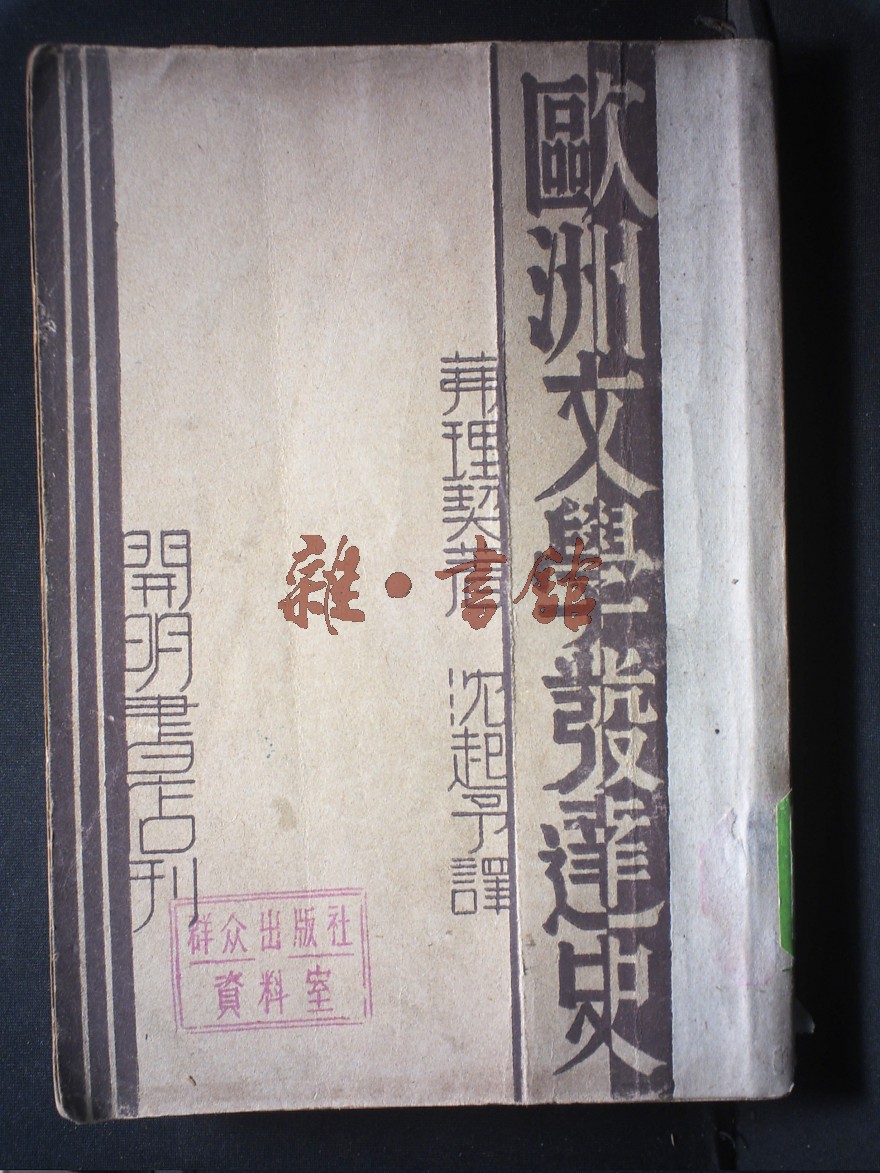 歐洲文學發達史
茀理契著 沈起予譯
開明書店刊
雜·書館
群众出版社
資料室